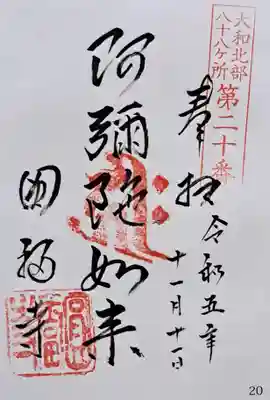 大和北部
八十八ヶ所
第二十番
奉拝
令和五年
十一月十一日
阿彌陀如来
圓福寺
20